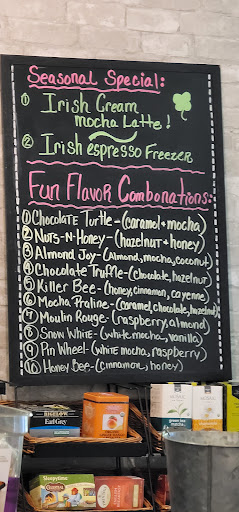 Seasonal Special:
① Irish Cream
mocha Latte!
② Irish espresso Freezer
Fun Flavor Combonations:
① Chocolate Turtle - (caramel + mocha)
② Nuts-N-Honey - (hazelnut + honey)
③ Almond Joy - (Almond, mocha, coconut)
④ Chocolate Truffle - (Chocolate, hazelnut)
⑤ Killer Bee - (honey, cinnamon, cayenne)
⑥ Mocha Praline - (caramel, chocolate, hazelnut)
⑦ Moulin Rouge - (raspberry, almond)
⑧ Snow White - (white mocha, vanilla)
⑨ Pin Wheel - (white mocha, raspberry)
⑩ Honey Bee - (cinnamon, honey)
BIGELOW
Earl Grey
Sleepytime
CELESTIAL